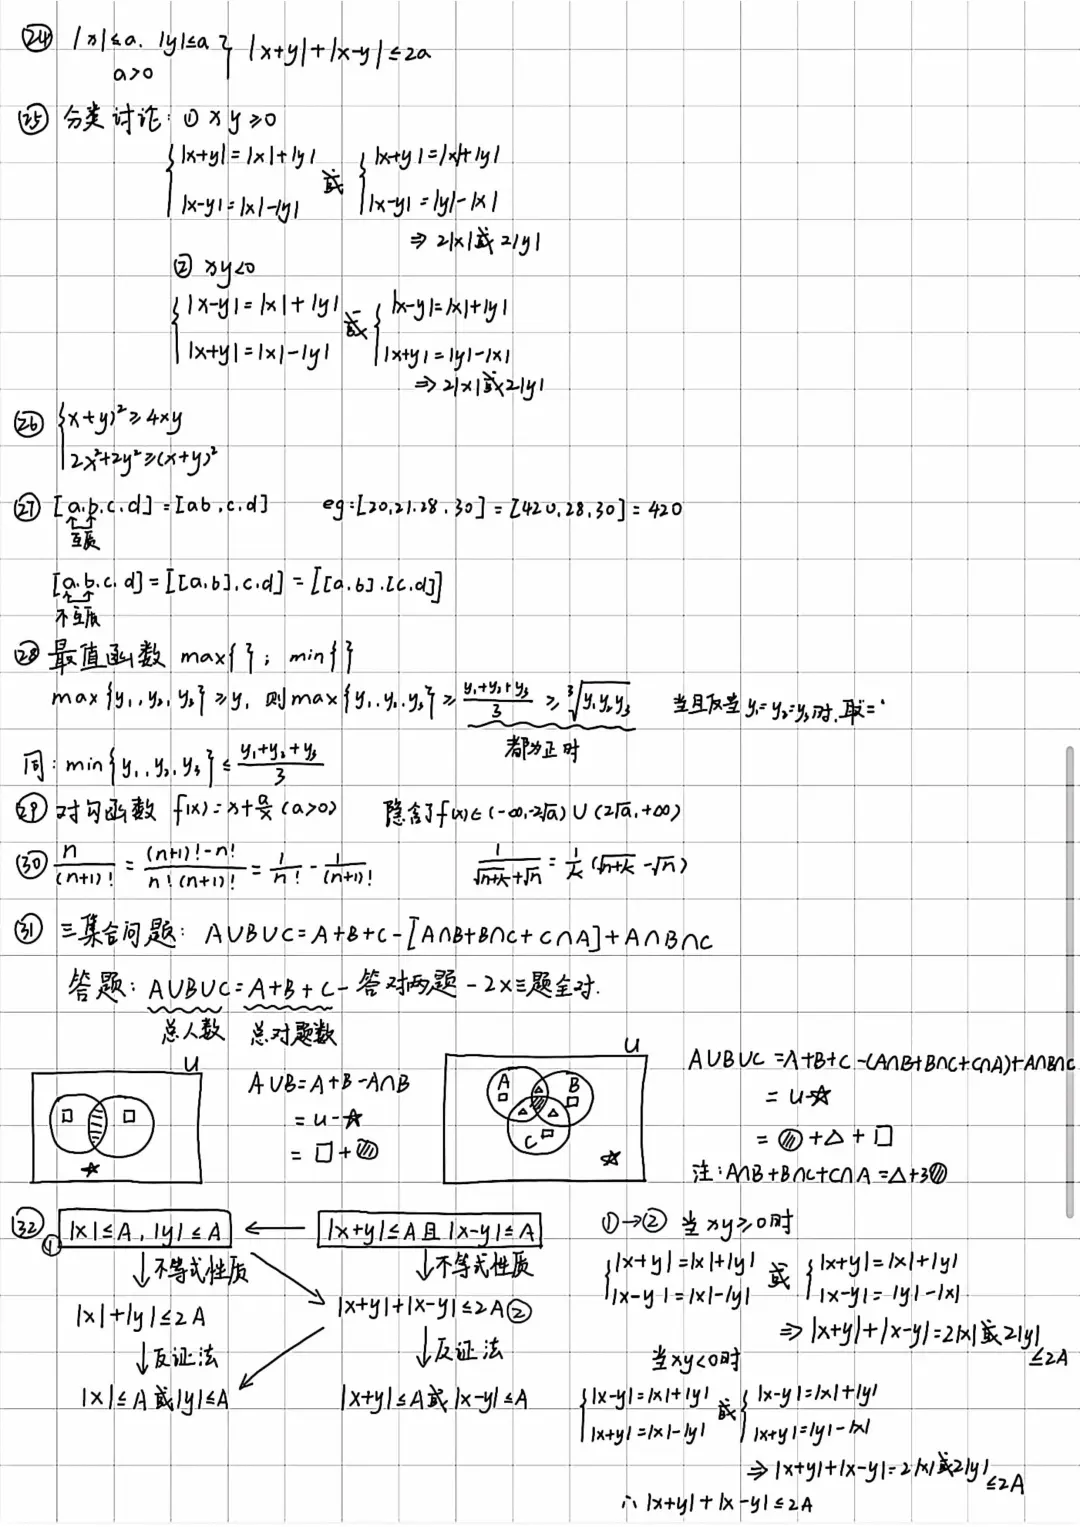 ㉔ |x|≤a, |y|≤a } |x+y|+|x-y|≤2a
a>0
㉕ 分类讨论: ① xy≥0
{ |x+y|=|x|+|y| 或 { |x+y|=|x|+|y|
|x-y|=|x|-|y| |x-y|=|y|-|x|
⇒ 2|x|或2|y|
② xy<0
{ |x-y|=|x|+|y| 或 { |x-y|=|x|+|y|
|x+y|=|x|-|y| |x+y|=|y|-|x|
⇒ 2|x|或2|y|
㉖ { (x+y)²≥4xy
2x²+2y²≥(x+y)²
㉗ [a,b,c,d]=[ab,c,d] eg:[20,21,28,30]=[420,28,30]=420
互质
[a,b,c,d]=[[a,b],c,d]=[[a,b],[c,d]]
不互质
㉘ 最值函数 max{ }; min{ }
max{y₁,y₂,y₃}≥y, 则max{y₁,y₂,y₃}≥(y₁+y₂+y₃)/3≥∛(y₁y₂y₃) 当且仅当y₁=y₂=y₃时,取=
都为正时
同: min{y₁,y₂,y₃}≤(y₁+y₂+y₃)/3
㉙ 对勾函数 f(x)=x+a/x (a>0) 隐含了f(x)∈(-∞,-2√a)∪(2√a,+∞)
㉚ n/(n+1)! = ((n+1)!-n!)/(n!(n+1)!) = 1/n! - 1/(n+1)! 1/(√(n+k)+√n) = 1/k (√(n+k)-√n)
㉛ 三集合问题: A∪B∪C=A+B+C-[A∩B+B∩C+C∩A]+A∩B∩C
答题: A∪B∪C=A+B+C-答对两题-2×三题全对.
总人数 总对题数
U
A∪B=A+B-A∩B
=U-☆
=□+◍
U
A B
C
A∪B∪C=A+B+C-(A∩B+B∩C+C∩A)+A∩B∩C
=U-☆
=◍+△+□
注:A∩B+B∩C+C∩A=△+3◍
㉜ ① |x|≤A, |y|≤A ← |x+y|≤A且|x-y|≤A
↓不等式性质 ↓不等式性质
|x|+|y|≤2A |x+y|+|x-y|≤2A ②
↓反证法 ↓反证法
|x|≤A或|y|≤A |x+y|≤A或|x-y|≤A
①→② 当xy≥0时
{ |x+y|=|x|+|y| 或 { |x+y|=|x|+|y|
|x-y|=|x|-|y| |x-y|=|y|-|x|
⇒ |x+y|+|x-y|=2|x|或2|y|≤2A
当xy<0时
{ |x-y|=|x|+|y| 或 { |x-y|=|x|+|y|
|x+y|=|x|-|y| |x+y|=|y|-|x|
⇒ |x+y|+|x-y|=2|x|或2|y|≤2A
∴ |x+y|+|x-y|≤2A